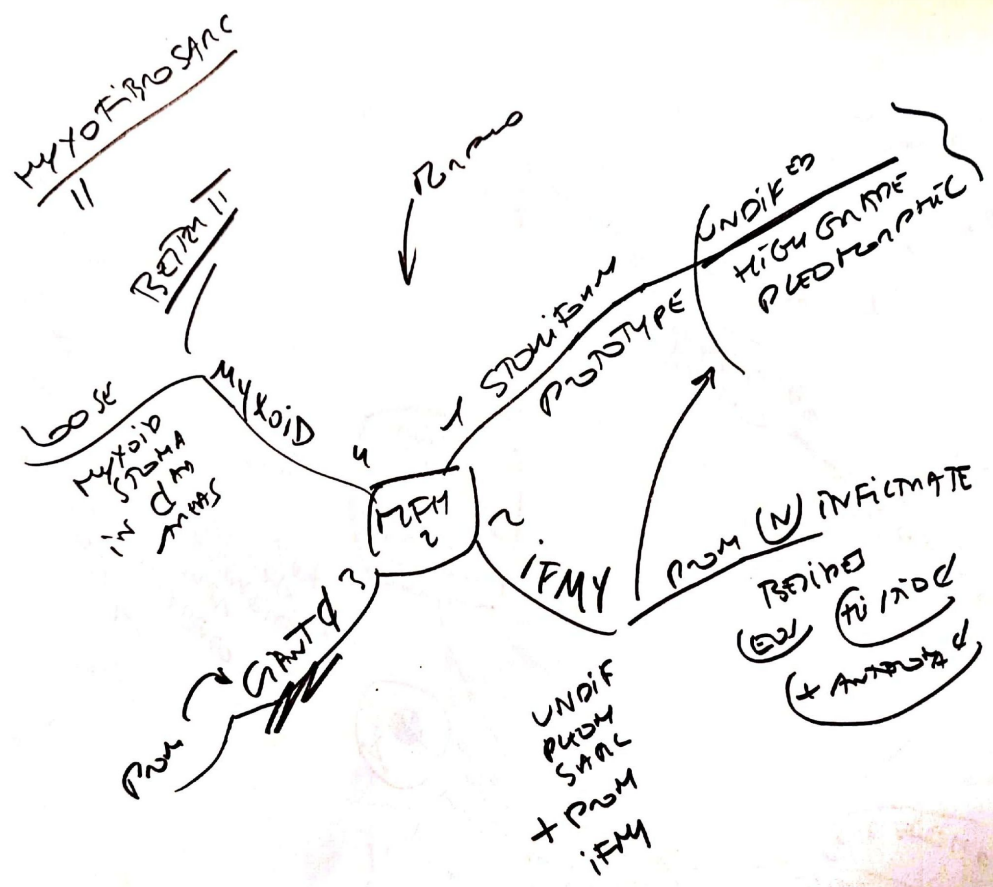 MYXOFIBROSARC
||
BETTER ||
UNDIF ED
HIGH GRADE
PLEOMORPHIC
1 STORIFORM
PROTOTYPE
LOOSE
4 MYXOID
MYXOID
STOMA
IN
AREAS
MFH
2
2 iFMY
PROM (N) iNFiLTRATE
BESIDES
EOS
+ ANTROMA
3 GIANT ¢
PROM
UNDIF
PLEOM
SARC
+ PROM
iFMY